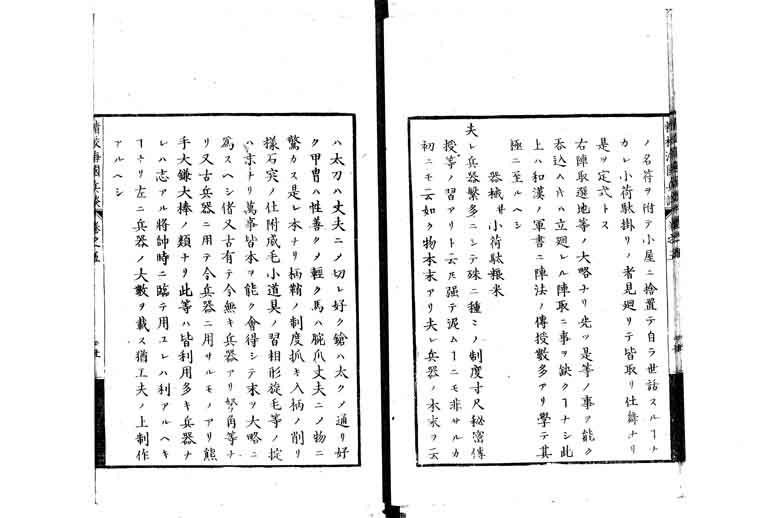 ノ名符ヲ附テ小屋ニ捨置テ自ラ世話スルヿナ
カレ小荷駄掛リノ者見廻リテ皆取リ仕舞ナリ
是ヲ定式トス
右陣取選地等ノ大略ナリ先ツ是等ノ事ヲ能ク
呑込へ𪜈ハ立廻レル陣取ニ事ヲ缺クヿナシ此
上ハ和漢ノ軍書ニ陣法ノ傳授數多アリ學テ其
極ニ至ルヘシ
器械並小荷駄糧米
夫レ兵器繁多ニシテ殊ニ種ミノ制度寸尺秘密傳
授等ノ習アリト云𪜈强テ泥ムヿニモ非サルカ
初ニモ云如ク物本末アリ夫レ兵器ノ本末ヲ云
ハ太刀ハ丈夫ニノ切レ好ク鎗ハ太クノ通リ好
ク甲冑ハ性善クノ輕ク馬ハ腕爪丈夫ニノ物ニ
驚カス是レ本ナリ柄鞘ノ制度抓キ入柄ノ削リ
樣石突ノ仕附威毛小道具ノ習相形旋毛等ノ掟
ハ末ナリ萬事皆本ヲ能ク會得シテ末ヲ大略ニ
爲スヘシ偖又古有テ今無キ兵器アリ弩角等ナ
リ又古兵器ニ用テ今兵器ニ用サルモノアリ熊
手大鎌大棒ノ類ナリ此等ハ皆利用多キ兵器ナ
レハ志アル將帥時ニ臨テ用ユレハ利アルヘキ
ヿナリ左ニ兵器ノ大數ヲ載ス猶工夫ノ上制作
アルヘシ
精校海國兵談 卷之五